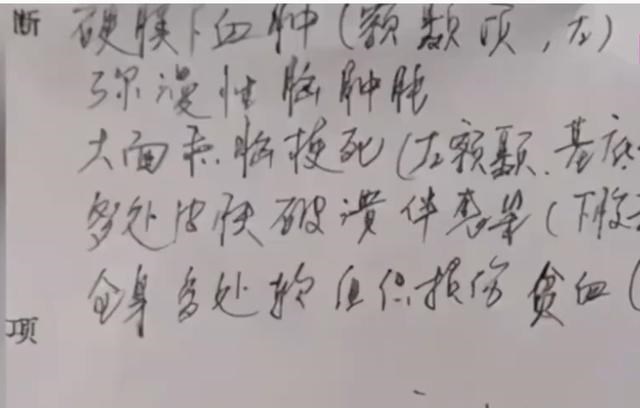 断 硬膜下血肿(额颞顶,左)
弥漫性脑肿胀
大面积脑梗死(左额颞、基底
多处皮肤破溃伴感染(下肢
全身多处软组织损伤 贫血(
项